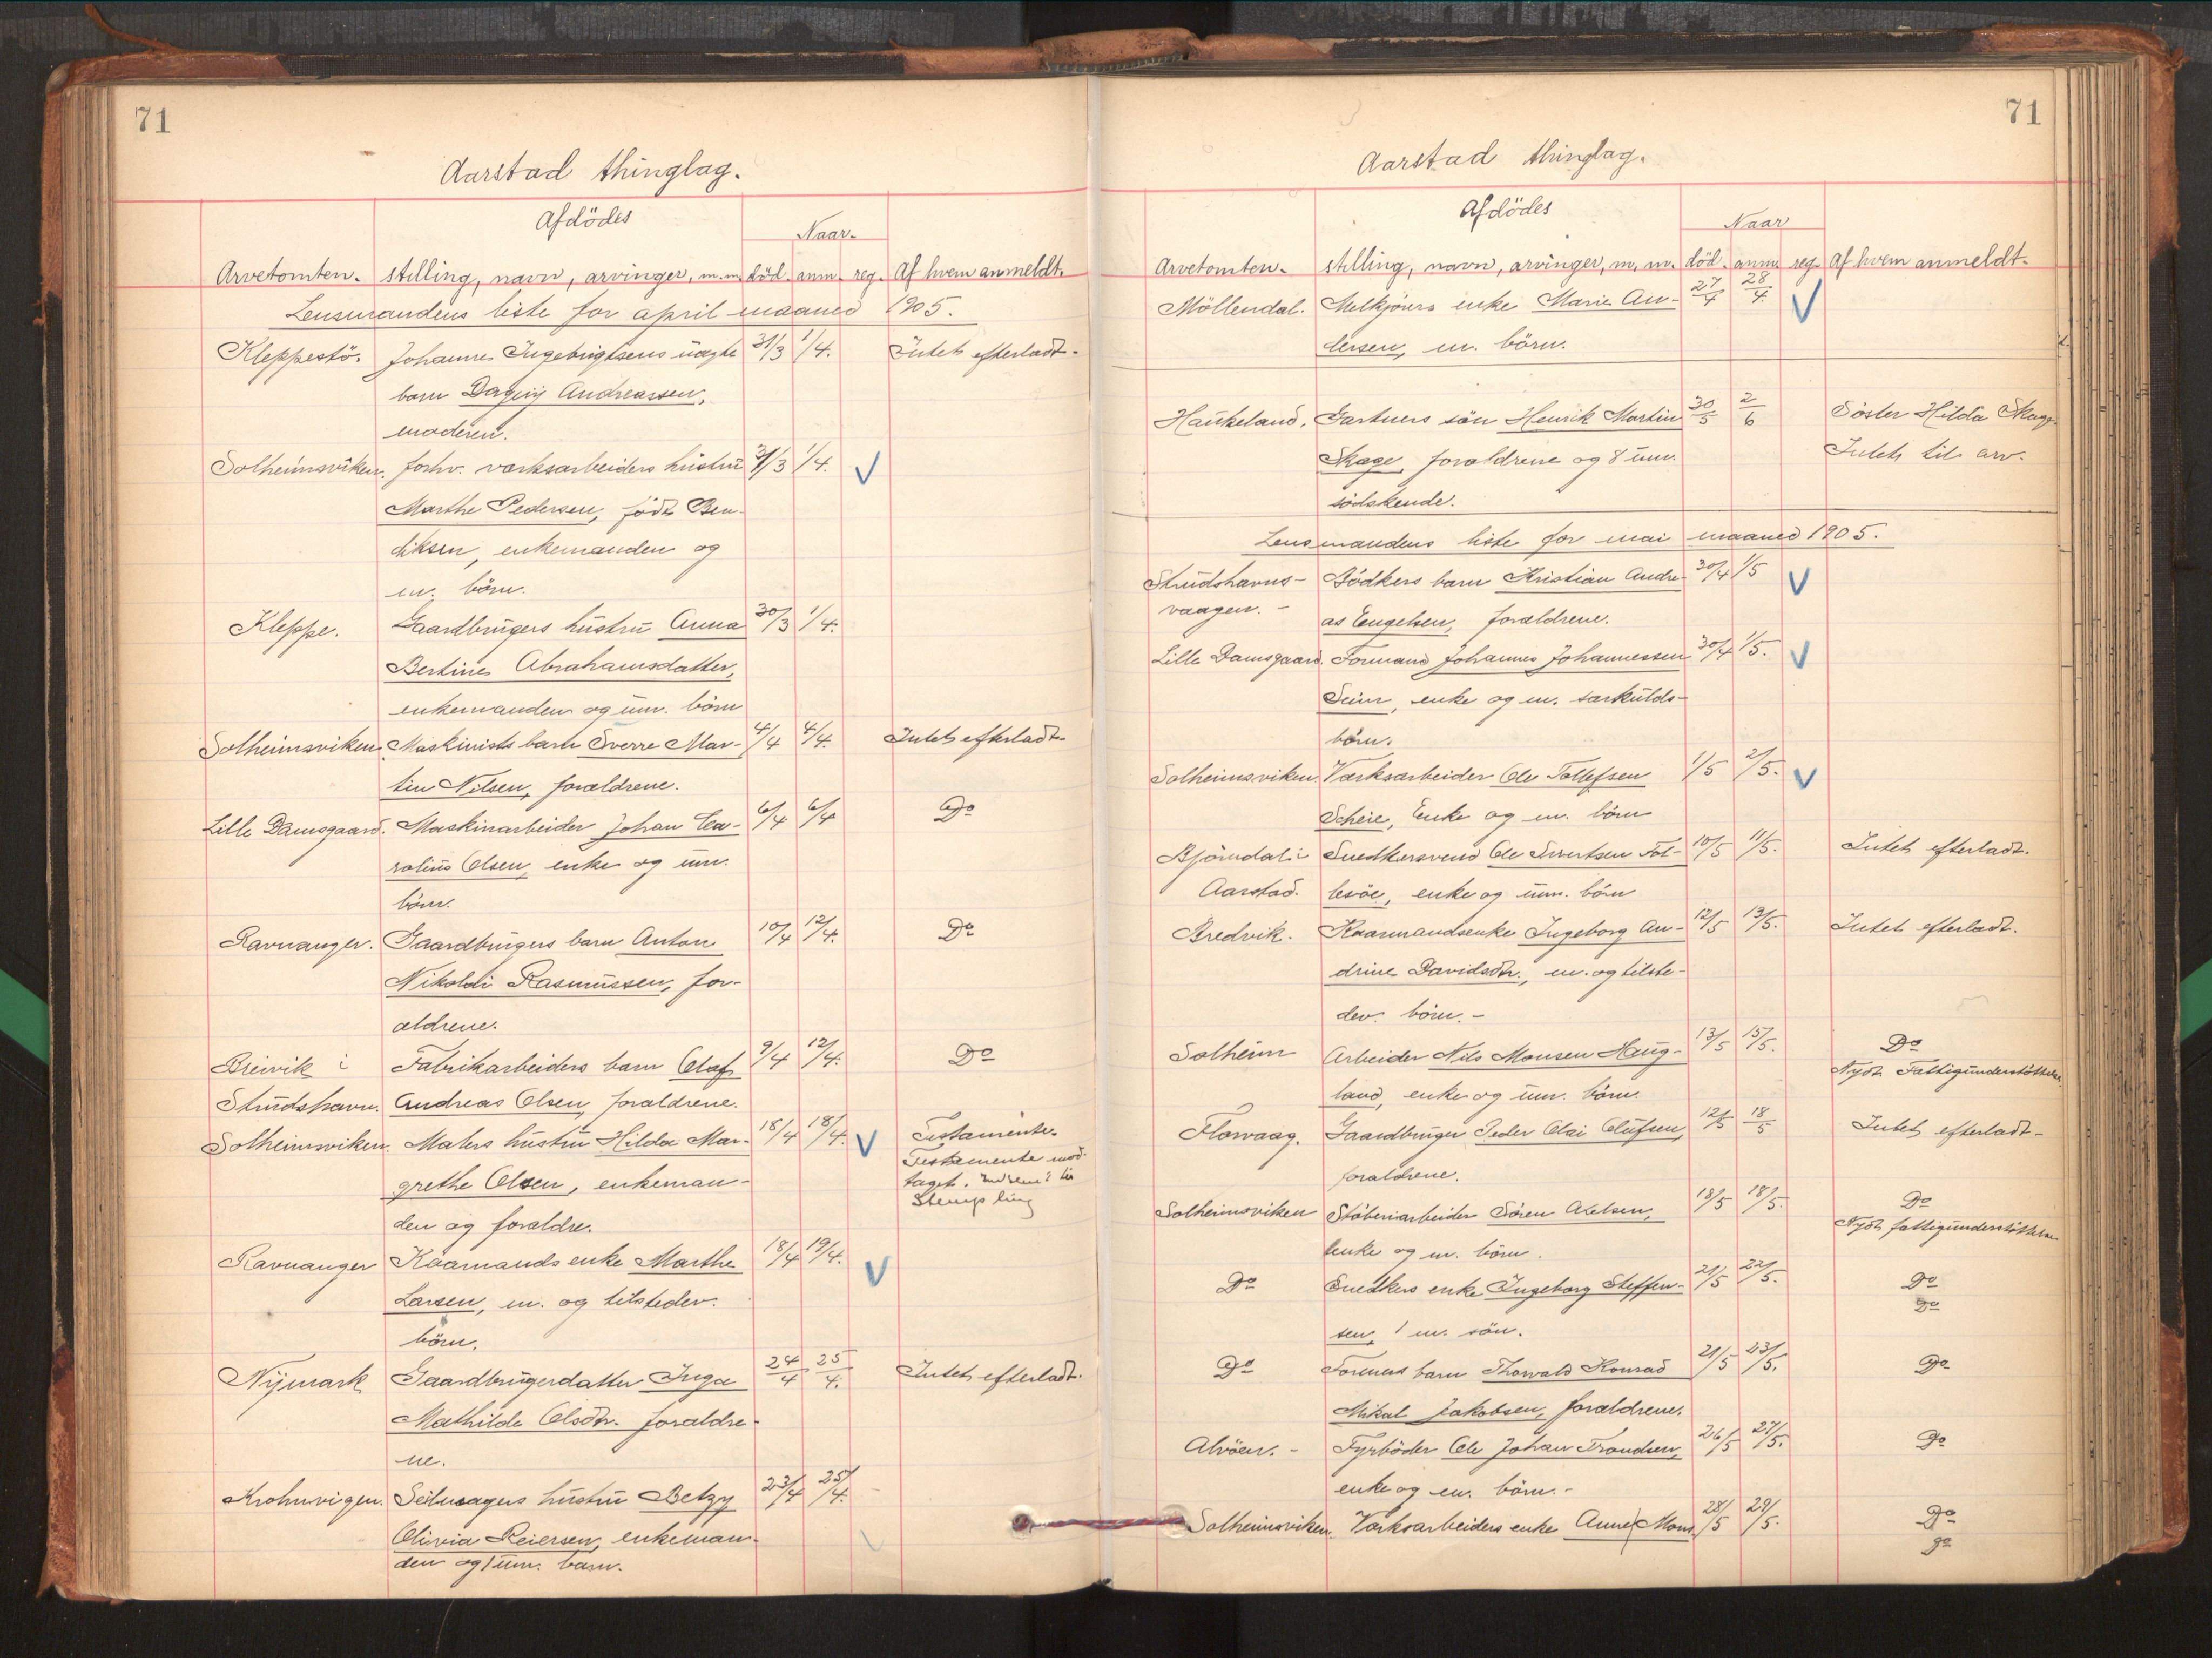 71
Aarstad thinglag.
Afdödes
Naar.
Arvetomten. stilling, navn, arvinger, m.m. död. anm. reg. Af hvem anmeldt.
Lensmandens liste for april maaned 1905.
Kleppestö. Johannes Ingebrigtsens uægte 31/3 1/4. Intet efterladt.
barn Dagny Andreassen,
moderen.
Solheimsviken. forhv. værksarbeiders hustru 31/3 1/4. V
Marthe Pedersen, födt Ben-
diksen, enkemanden og
m. börn.
Kleppe. Gaardbrugers hustru Anna 30/3 1/4.
Bertine Abrahamsdatter,
enkemanden og um. börn
Solheimsviken Maskinists barn Sverre Mar- 4/4 4/4. Intet efterladt.
tin Nilsen, forældrene.
Lille Damsgaard. Maskinarbeider Johan Ca- 6/4 6/4 Do
rolius Olsen, enke og um.
börn.
Ravnanger. Gaardbrugers barn Anton 10/4 12/4. Do
Nikolai Rasmussen, for-
ældrene.
Breivik i Fabrikarbeiders barn Olaf 9/4 12/4. Do
Strudshavn. Andreas Olsen, forældrene.
Solheimsviken. Malers hustru Hilda Mar- 18/4 18/4. V Testamente.
Testamente mod-
grethe Olsen, enkeman- taget. til
Stempling
den og forældre.
Ravnanger Kaarmands enke Marthe 18/4 19/4. V
Larsen, m. og tilstedev.
börn.
Nymark Gaardbrugerdatter Inga 24/4 25/4. Intet efterladt.
Mathilde Olsdtr. forældre-
ne.
Krohnvigen. Seilmagers hustru Betzy 23/4 25/4.
Olivia Reiersen, enkeman-
den og 1 um. barn.
71
Aarstad thinglag.
Afdödes
Naar
Arvetomten. stilling, navn, arvinger, m. m. död. anm. reg. Af hvem anmeldt.
Möllendal. Melkjörers enke Marie An- 27/4 28/4 V
dersen, m. börn.
Haukeland. Gartners sön Henrik Martin 30/5 2/6 Söster Hilda Skage.
Skage, forældrene og 8 um. Intet til arv.
södskende.
Lensmandens liste for mai maaned 1905.
Strudshavns- Bödkers barn Kristian Andre- 30/4 1/5 V
vaagen. as Engelsen, forældrene.
Lille Damsgaard. Formand Johannes Johannessen 30/4 1/5. V
Seim, enke og m. særkulds-
börn.
Solheimsviken Værksarbeider Ole Tollefsen 1/5 2/5. V
Scheie, Enke og m. börn
Björndal i Snedkersvend Ole Sivertsen Tol- 10/5 11/5. Intet efterladt.
Aarstad. lesöe, enke og um. börn
Bredvik. Kaarmandsenke Ingeborg An- 12/5 13/5. Intet efterladt.
drine Davidsdtr., m. og tilste-
dev. börn.
Solheim Arbeider Nils Monsen Haug- 13/5 15/5. Do
Nydt Fattigunderstöttelse.
land, enke og um. börn.
Florvaag. Gaardbruger Peder Olai Olufsen, 12/5 18/5 Intet efterladt.
forældrene.
Solheimsviken Stöberiarbeider Sören Axelsen, 18/5 18/5. Do
Nydt fattigunderstöttelse
Enke og m. börn.
Do Snedkers enke Ingeborg Steffen- 21/5 22/5. Do
Do
sen, 1 m. sön.
Do Formers barn Thorvald Konrad 21/5 23/5. Do
Mikal Jakobsen, forældrene.
Alvöen. Fyrböder Ole Johan Trondsen, 26/5 27/5. Do
enke og m. börn.
Solheimsviken. Værksarbeiders enke Anne Mons. 28/5 29/5. Do
Do